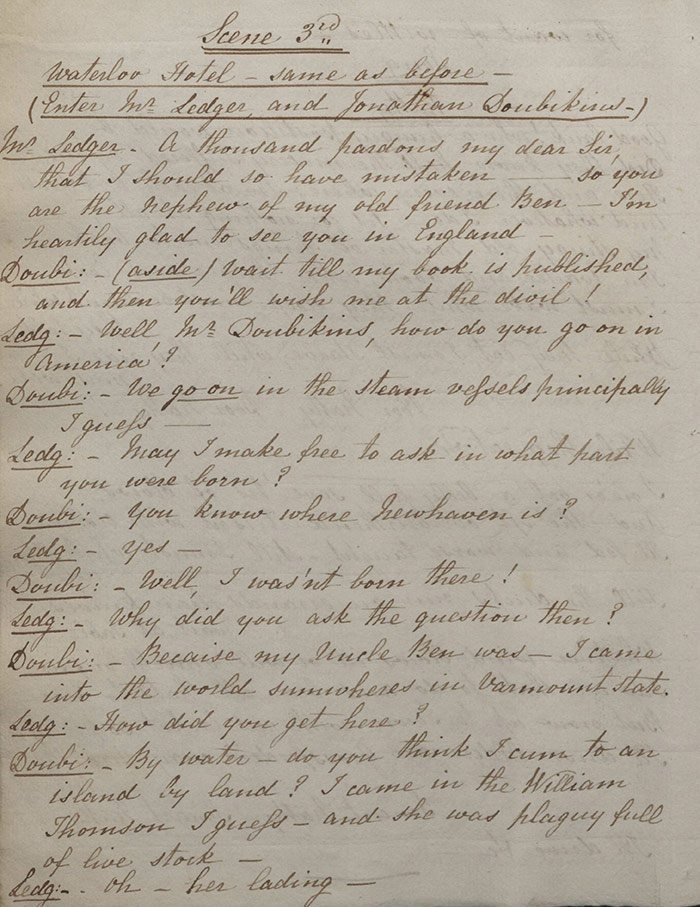 Scene 3rd
Waterloo Hotel - same as before -
(Enter Mr Ledger, and Jonathan Doubikins -)
Mr Ledger - A thousand pardons my dear Sir,
that I should so have mistaken — so you
are the nephew of my old friend Ben - I'm
heartily glad to see you in England -
Doubi: - (aside) Wait till my book is published,
and then you'll wish me at the divil!
Ledg: - Well, Mr Doubikins, how do you go on in
America?
Doubi: - We go on in the steam veſsels principally
I gueſs —
Ledg: - May I make free to ask in what part
you were born?
Doubi: - You know where Newhaven is?
Ledg: - Yes -
Doubi: - Well, I was'nt born there!
Ledg: - Why did you ask the question then?
Doubi: - Becaise my Uncle Ben was - I came
into the world sumwheres in Varmount state.
Ledg: - How did you get here?
Doubi: - By water - do you think I cum to an
island by land? I came in the William
Thomson I gueſs - and she was plaguy full
of live stock -
Ledg: - Oh - her lading -